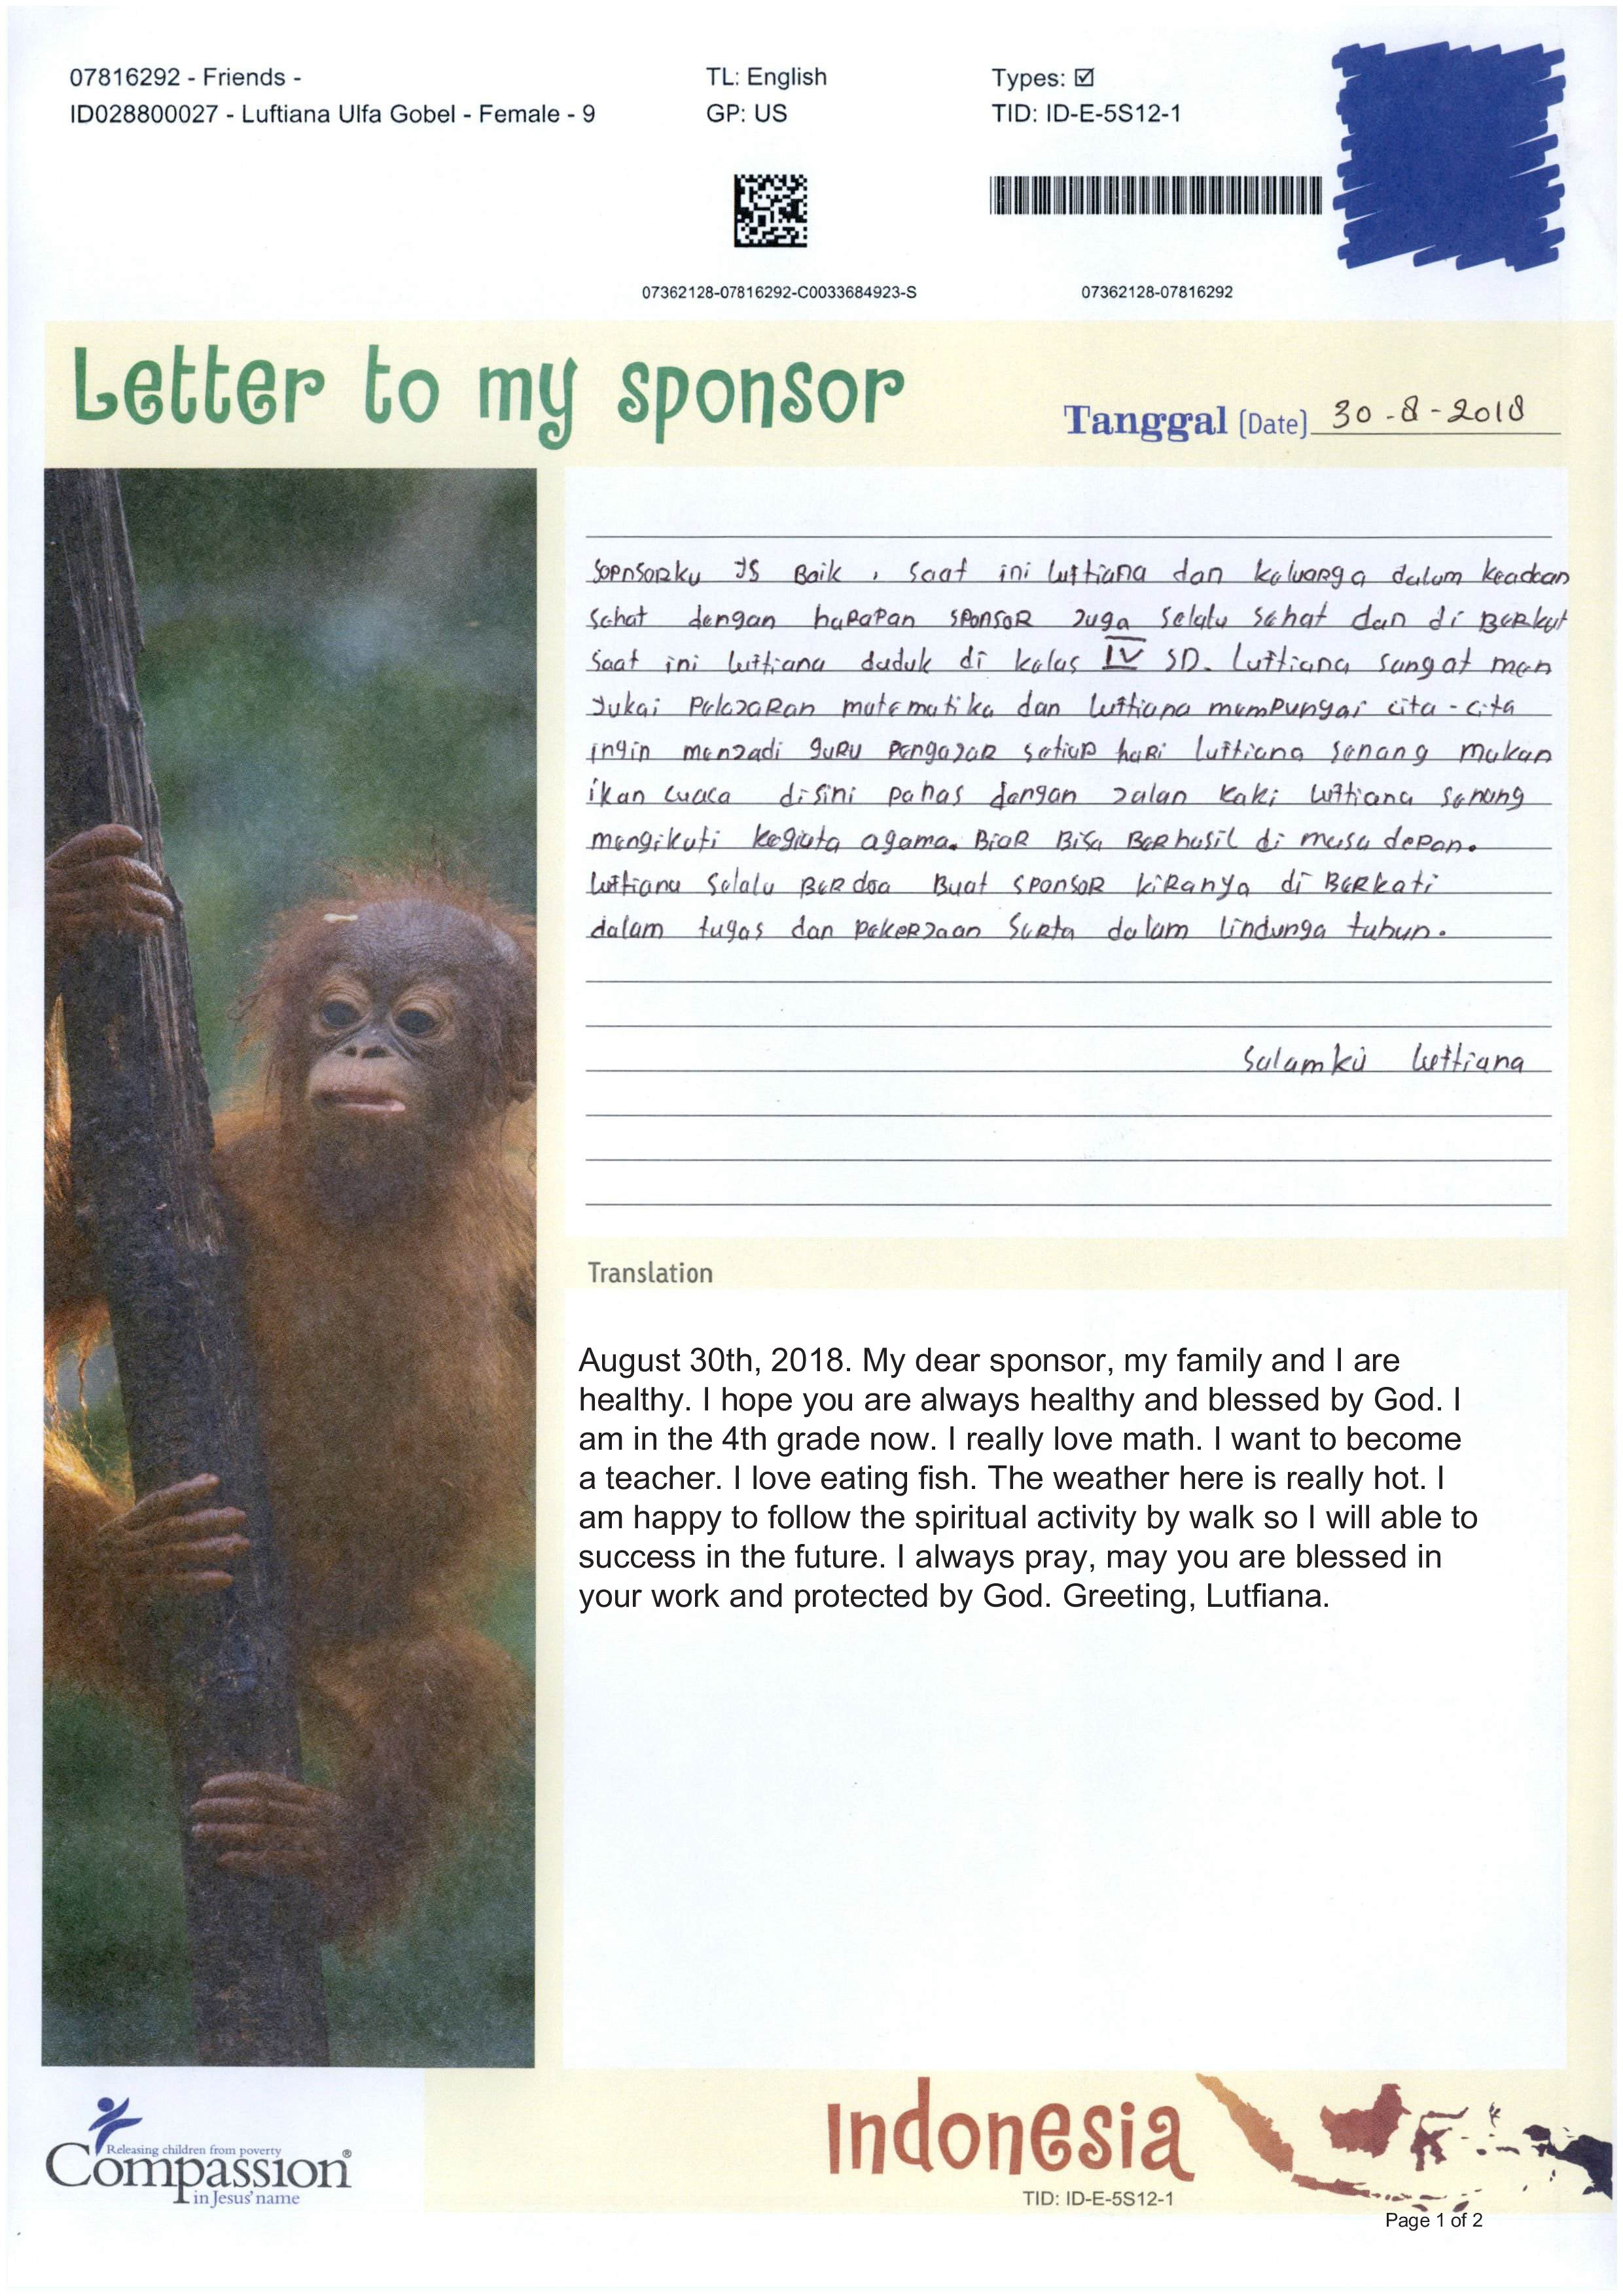 07816292 - Friends -
ID028800027 - Luftiana Ulfa Gobel - Female - 9
TL: English
GP: US
Types: ☑
TID: ID-E-5S12-1
07362128-07816292-C0033684923-S
07362128-07816292
Letter to my sponsor
Tanggal (Date) 30-8-2018
Sopnsorku JS Baik, saat ini luftiana dan keluarga dalam keadaan
sehat dengan haparan sponsor juga selalu sehat dan di Berkat
saat ini luftiana duduk di kelas IV SD. luftiana sangat men
yukai Pelajaran matematika dan luftiana mempunyai cita-cita
ingin menjadi guru pengajar setiap hari luftiana senang makan
ikan cuaca disini panas dengan jalan kaki luftiana senang
mengikuti kegiata agama. Biar Bisa Berhasil di masa depan.
luftiana selalu Berdoa Buat sponsor kiranya di Berkati
dalam tugas dan pekerjaan serta dalam lindunga tuhan.
Salamku luftiana
Translation
August 30th, 2018. My dear sponsor, my family and I are
healthy. I hope you are always healthy and blessed by God. I
am in the 4th grade now. I really love math. I want to become
a teacher. I love eating fish. The weather here is really hot. I
am happy to follow the spiritual activity by walk so I will able to
success in the future. I always pray, may you are blessed in
your work and protected by God. Greeting, Lutfiana.
Releasing children from poverty
Compassion®
in Jesus' name
Indonesia
TID: ID-E-5S12-1
Page 1 of 2